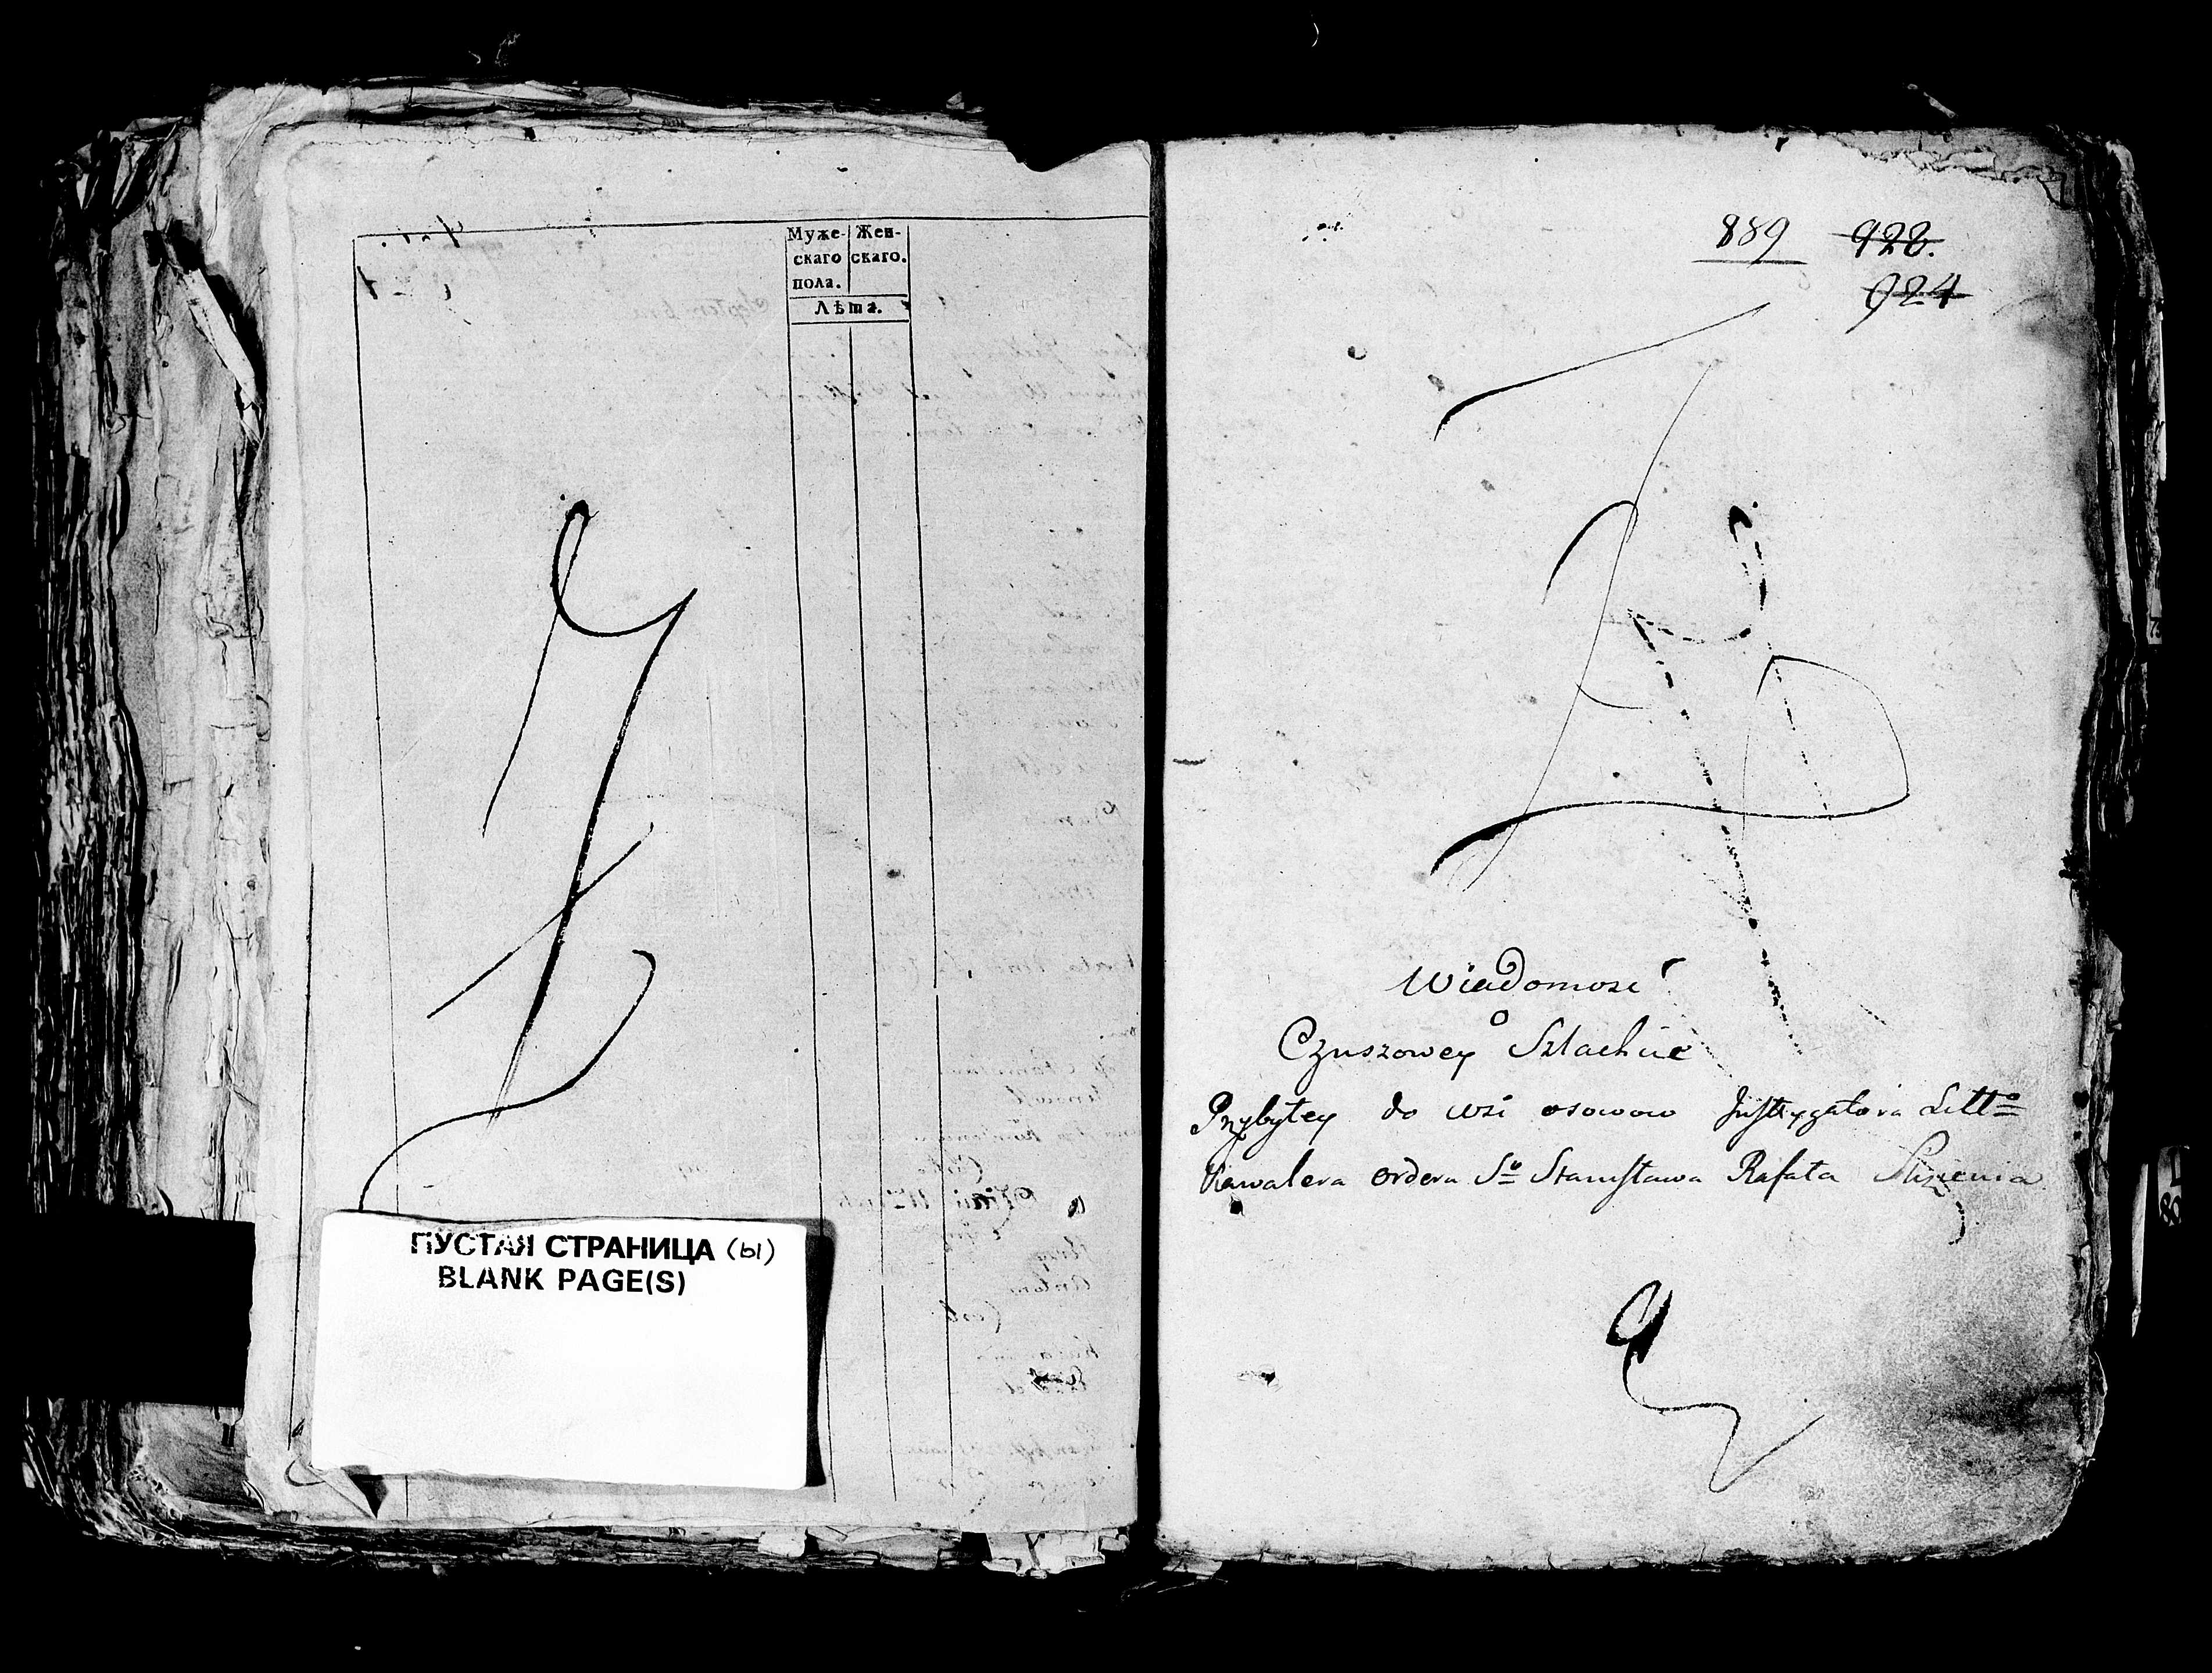 Муже-
скаго
пола.
Жен-
скаго.
Лѣта.
ПУСТАЯ СТРАНИЦА (ы)
BLANK PAGE(S)
889 928.
924
Wiadomość
o
Czynszowey Szlachcie
Przybyłey do wsi osowow Instygatora Litt°
Kawalera Ordera S° Stanisława Rafała Slizienia